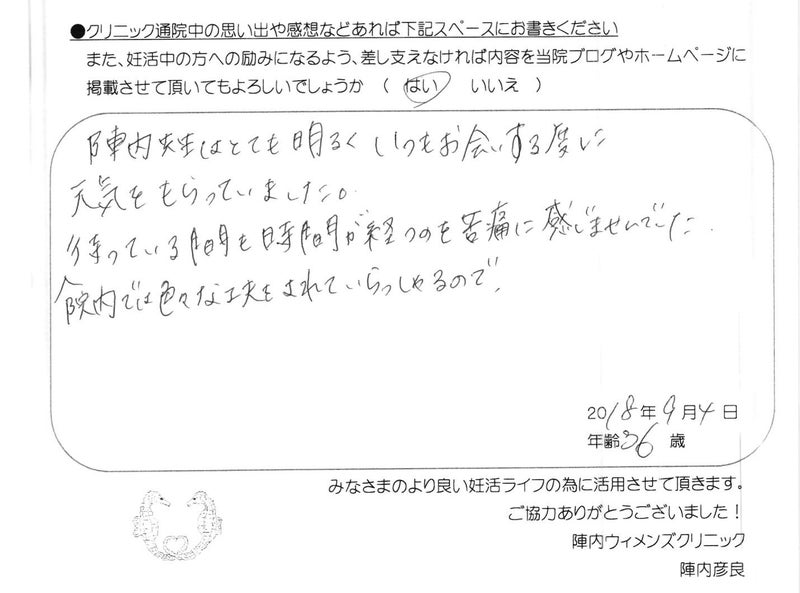 ●クリニック通院中の思い出や感想などあれば下記スペースにお書きください
また、妊活中の方への励みになるよう、差し支えなければ内容を当院ブログやホームページに
掲載させて頂いてもよろしいでしょうか （ はい いいえ ）
陣内先生はとても明るくいつもお会いする度に
元気をもらっていました。
待っている間も時間が経つのを苦痛に感じませんでした.
院内では色々な工夫をされていらっしゃるので,
2018年9月4日
年齢36歳
みなさまのより良い妊活ライフの為に活用させて頂きます。
ご協力ありがとうございました！
陣内ウィメンズクリニック
陣内彦良